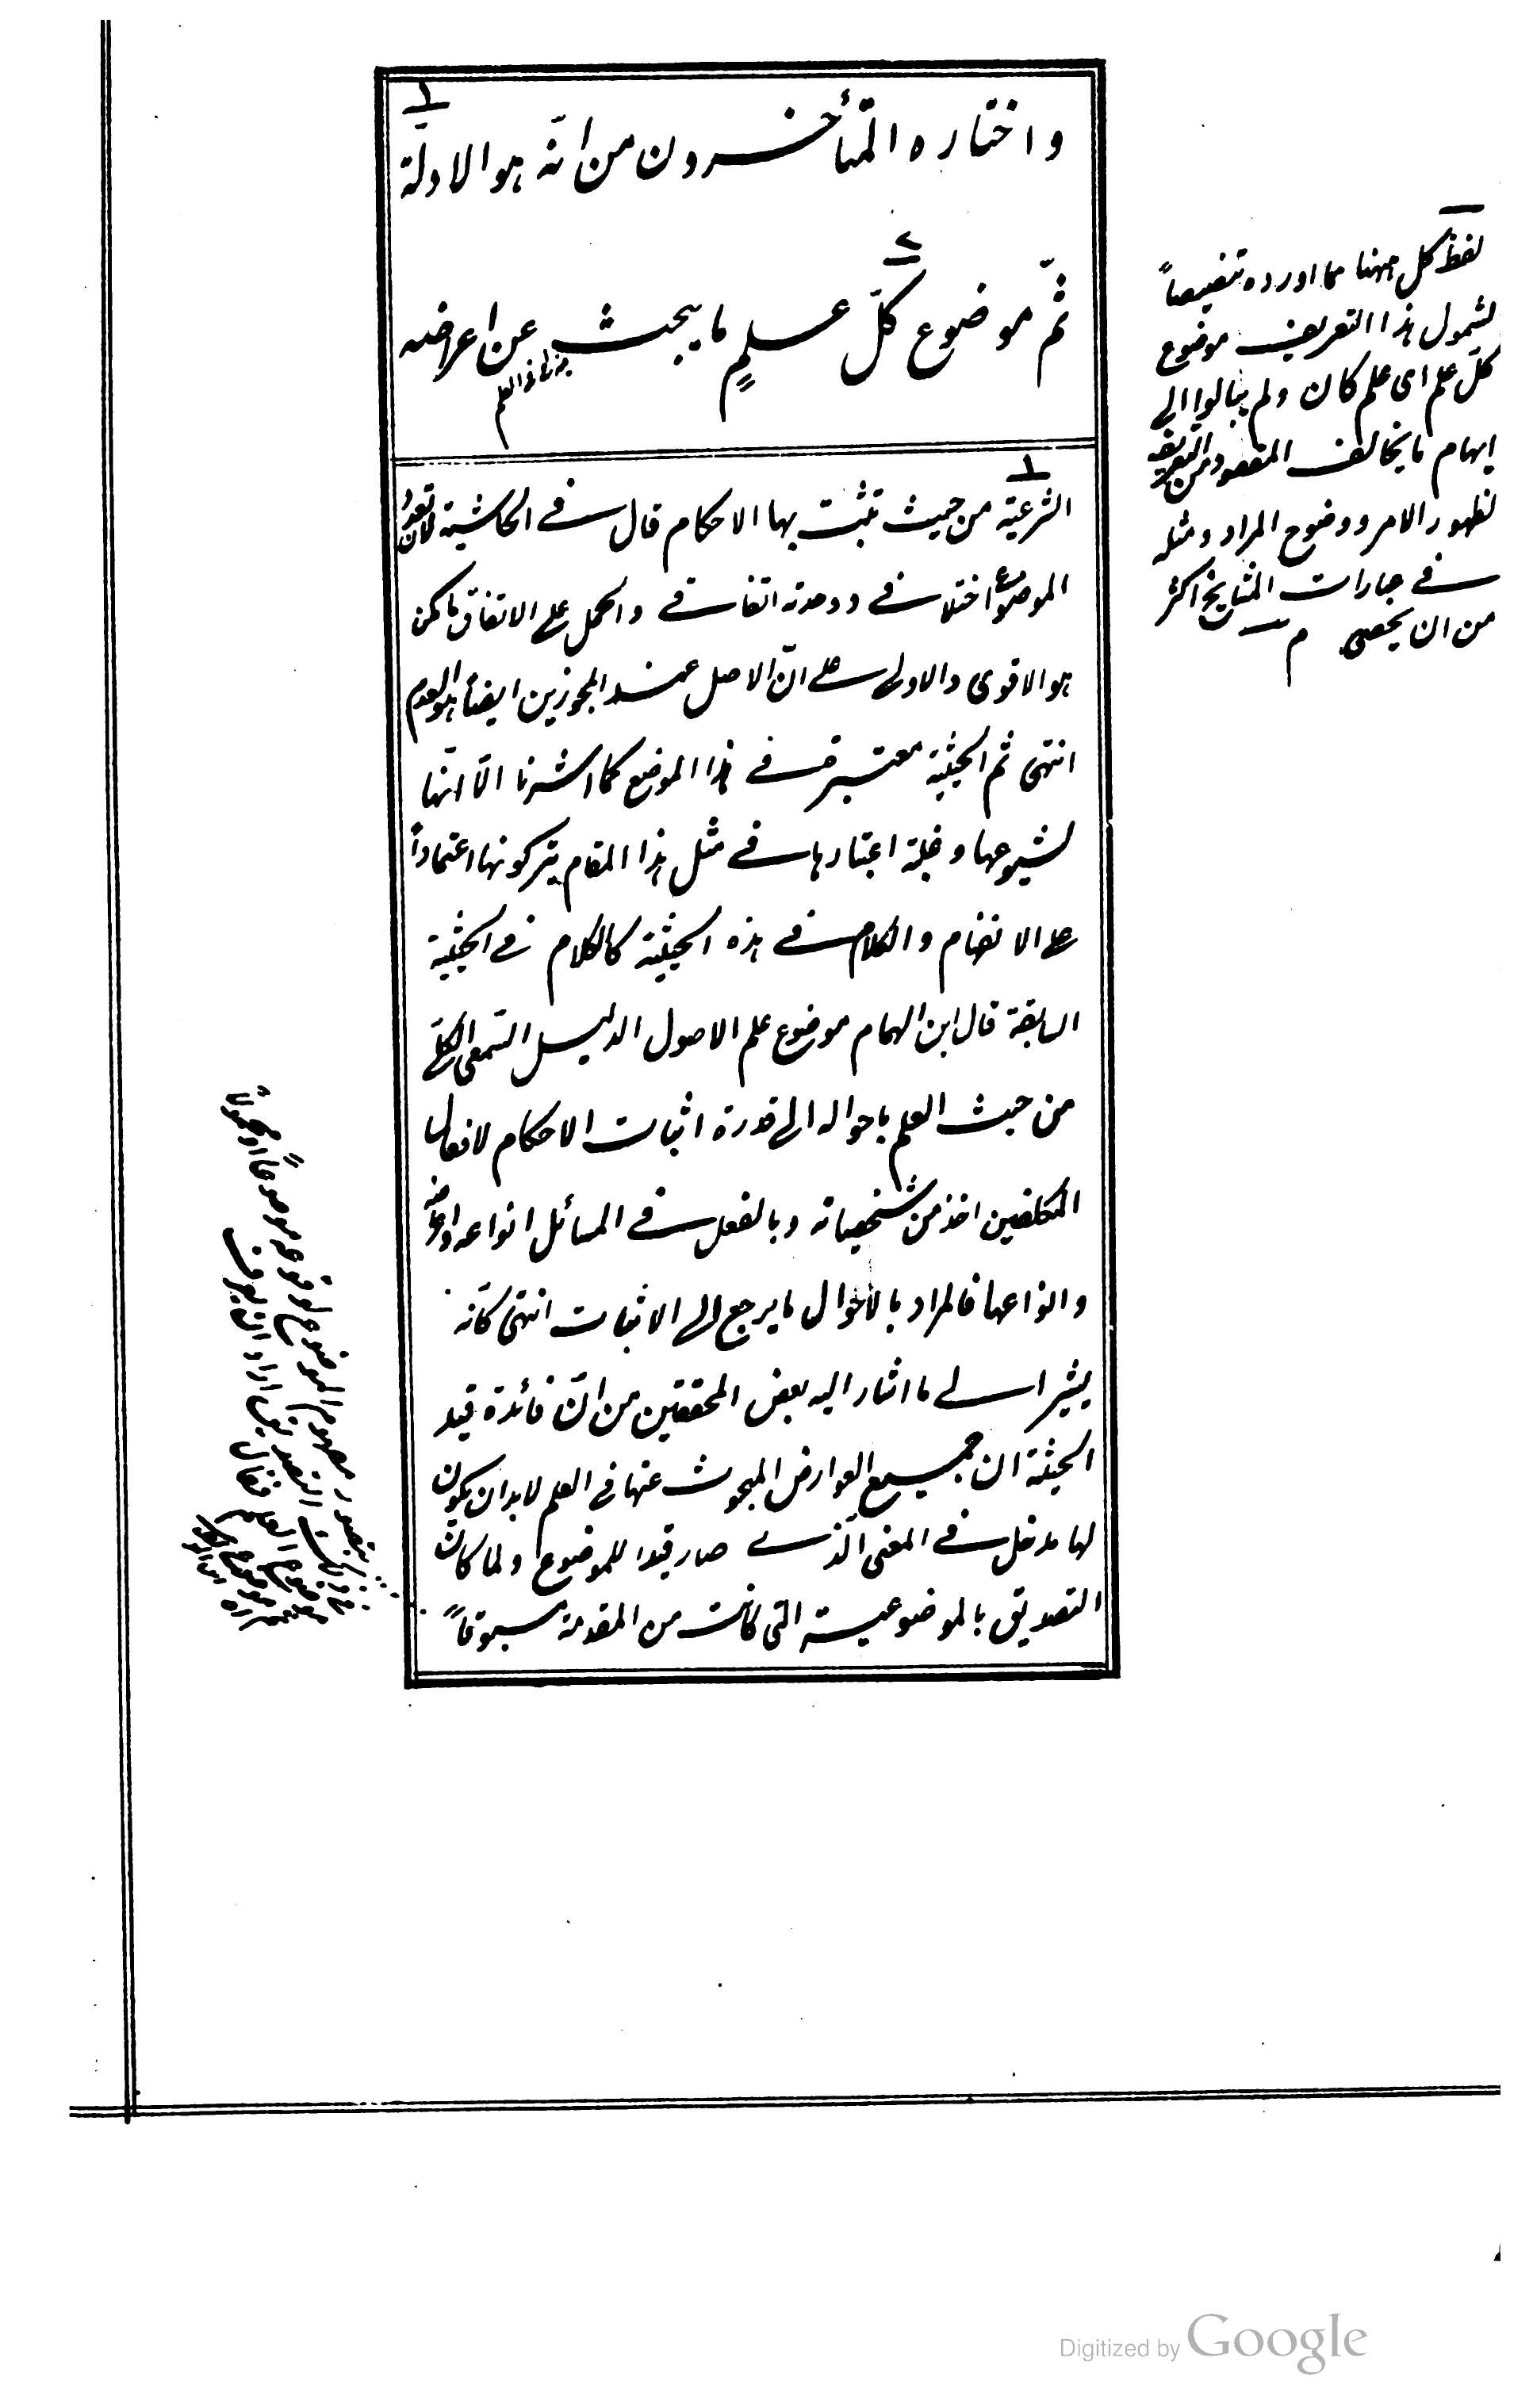 واختاره المتأخرون من انّه هو الادلّة
ثمّ موضوع كلّ علمٍ ما يبحث عن اعراضه
الشرعيّة من حيث تثبت بها الاحكام قال فى الحاشية لان تعدد
الموضوع اختلافى ووحدته اتفاقى والحمل على الاتفاق ما امكن
هو الاقوى والاولى على انّ الاصل عند المجوزين ايضاً هو العدم
انتهى ثم الحيثية معتبرة فى هذا الموضع كما اشرنا الّا انّها
لشيوعها وغلبة اعتبارها فى مثل هذا المقام يتركونها اعتماداً
على الانفهام والكلام فى هذه الحيثية كالكلام فى الحيثية
السابقة قال ابن الهمام موضوع علم الاصول الدليل السّمعى الكلّى
من حيث العلم باحواله الى قدرة اثبات الاحكام لافعال
المكلفين اخذ من شخصياته وبالفعل فى المسائل انواعه واعراضه
وانواعها فالمراد بالاحوال ما يرجع الى الاثبات انتهى كانّه
يشير الى ما اشار اليه بعض المحققين من انّ فائدة قيد
الحيثية ان جميع العوارض المبحوث عنها فى العلم لابد ان يكون
لها مدخل فى المعنى الّذى صار قيدا للموضوع ولما كان
التصديق بالموضوعية التى كانت من المقدمة مسبوقاً
لفظ كل ههنا مما اورده تنصيصاً
لشمول هذا التعريف موضوع
كلّ علم اى علم كان ولم يبالوا الى
ايهام ما يخالف المقصود من التعريف
لظهور الامر ووضوح المراد ومثله
فى عبارات المشايخ اكثر
من ان يحصى م
Digitized by Google